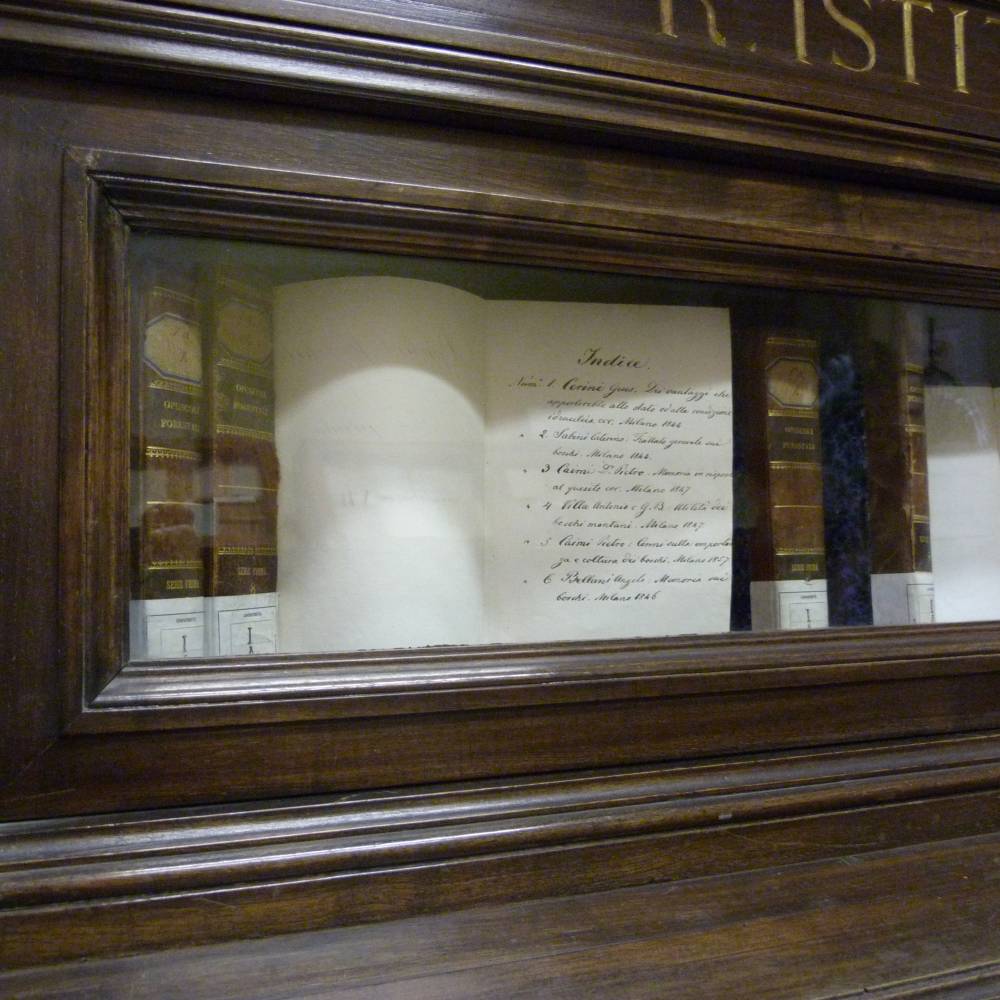 R. ISTIT
OPUSCOLI
FORESTALI
SERIE PRIMA
I
OPUSCOLI
FORESTALI
SERIE PRIMA
I
Indice.
Num. 1. Cerini Gius. Dei vantaggi che
apporterebbe allo stato ed alla
cov. Milano 1844
" 2. Sabrini Calunno. Trattato generale sui
boschi. Milano 1844.
" 3 Caimi Dr. Pietro. Memoria in
al quesito cov. Milano 1847
" 4 Villa Antonio e G. B. Utilità dei
boschi montani. Milano 1847
" 5 Caimi Pietro. Cenni sulla
za e coltura dei boschi. Milano 1857
" 6 Bellani Angelo. Memoria sui
boschi. Milano 1846
OPUSCOLI
FORESTALI
SERIE PRIMA
I